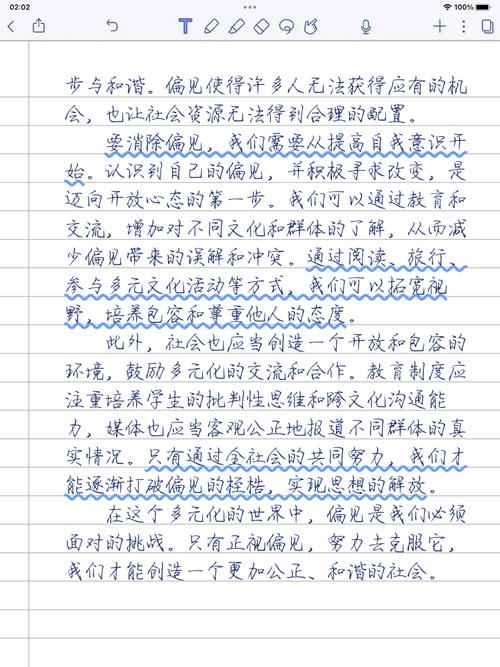 02:02
100%
T
步与和谐。偏见使得许多人无法获得应有的机
会，也让社会资源无法得到合理的配置。
要消除偏见，我们需要从提高自我意识开
始。认识到自己的偏见，并积极寻求改变，是
迈向开放心态的第一步。我们可以通过教育和
交流，增加对不同文化和群体的了解，从而减
少偏见带来的误解和冲突。通过阅读、旅行、
参与多元文化活动等方式，我们可以拓宽视
野，培养包容和尊重他人的态度。
此外，社会也应当创造一个开放和包容的
环境，鼓励多元化的交流和合作。教育制度应
注重培养学生的批判性思维和跨文化沟通能
力，媒体也应当客观公正地报道不同群体的真
实情况。只有通过全社会的共同努力，我们才
能逐渐打破偏见的桎梏，实现思想的解放。
在这个多元化的世界中，偏见是我们必须
面对的挑战。只有正视偏见，努力去克服它，
我们才能创造一个更加公正、和谐的社会。